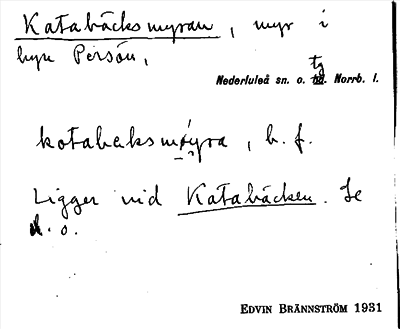 Katabäcksmyran, myr i
byn Persön,
Nederluleå sn. o. tg. Norrb. l.
kotabeksmøyra, b. f.
Ligger vid Katabäcken. Se
d. o.
EDVIN BRÄNNSTRÖM 1931